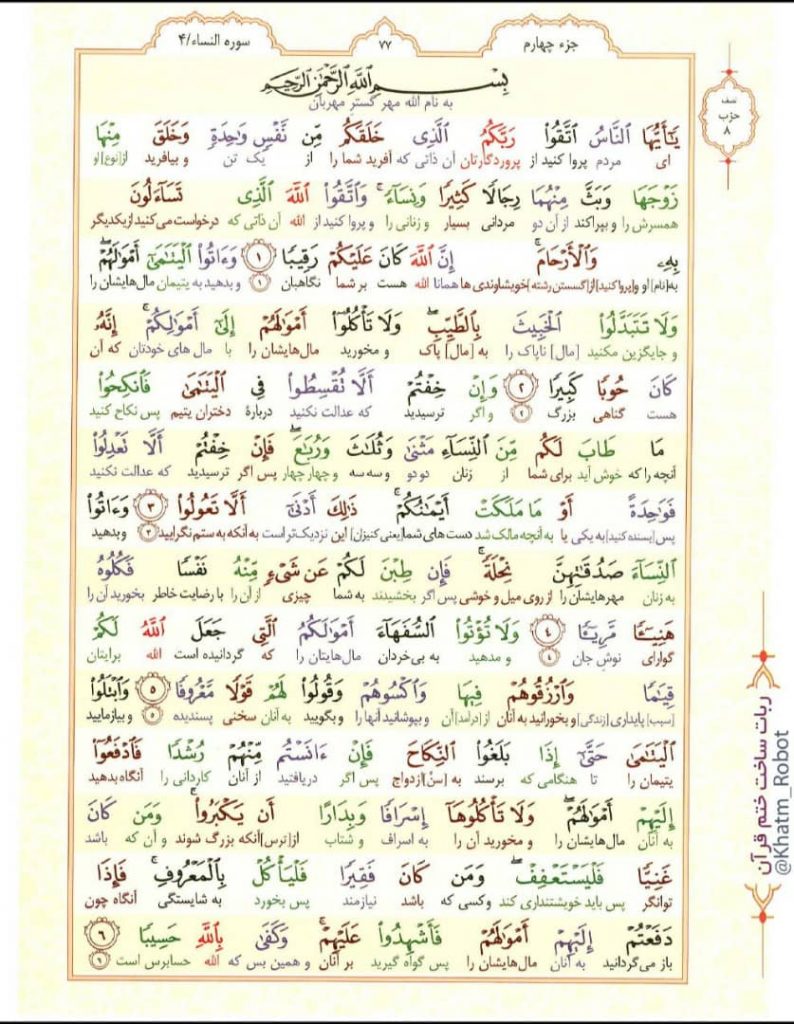 سوره النساء/۴
۷۷
جزء چهارم
نصف
حزب
۸
بِسْمِ اللَّهِ الرَّحْمَٰنِ الرَّحِيمِ
به نام الله مهر گستر مهربان
يَـٰٓأَيُّهَا ٱلنَّاسُ ٱتَّقُوا۟ رَبَّكُمُ ٱلَّذِى خَلَقَكُم مِّن نَّفْسٍ وَٰحِدَةٍ وَخَلَقَ مِنْهَا
ای مردم پروا کنید از پروردگارتان آن ذاتی که آفرید شما را از یک تن و بیافرید از[نوع] او
زَوْجَهَا وَبَثَّ مِنْهُمَا رِجَالًا كَثِيرًا وَنِسَآءً ۚ وَٱتَّقُوا۟ ٱللَّهَ ٱلَّذِى تَسَآءَلُونَ
همسرش را و بپراکند از آن دو مردانی بسیار و زنانی را و پروا کنید از الله آن ذاتی که درخواست می‌کنید از یکدیگر
بِهِۦ وَٱلْأَرْحَامَ ۚ إِنَّ ٱللَّهَ كَانَ عَلَيْكُمْ رَقِيبًا ۱ وَءَاتُوا۟ ٱلْيَتَـٰمَىٰٓ أَمْوَٰلَهُمْ ۖ
به[نام] او و[پروا کنید] از[گسستن رشته] خویشاوندی ها همانا الله هست بر شما نگاهبان ۱ و بدهید به یتیمان مال‌هایشان را
وَلَا تَتَبَدَّلُوا۟ ٱلْخَبِيثَ بِٱلطَّيِّبِ ۖ وَلَا تَأْكُلُوٓا۟ أَمْوَٰلَهُمْ إِلَىٰٓ أَمْوَٰلِكُمْ ۚ إِنَّهُۥ
و جایگزین مکنید [مال] ناپاک را به [مال] پاک و مخورید مال‌هایشان را با مال های خودتان که آن
كَانَ حُوبًا كَبِيرًا ۲ وَإِنْ خِفْتُمْ أَلَّا تُقْسِطُوا۟ فِى ٱلْيَتَـٰمَىٰ فَٱنكِحُوا۟
هست گناهی بزرگ ۲ و اگر ترسیدید که عدالت نکنید دربارهٔ دختران یتیم پس نکاح کنید
مَا طَابَ لَكُم مِّنَ ٱلنِّسَآءِ مَثْنَىٰ وَثُلَـٰثَ وَرُبَـٰعَ ۖ فَإِنْ خِفْتُمْ أَلَّا تَعْدِلُوا۟
آنچه را که خوش آید برای شما از زنان دو دو و سه سه و چهار چهار پس اگر ترسیدید که عدالت نکنید
فَوَٰحِدَةً أَوْ مَا مَلَكَتْ أَيْمَـٰنُكُمْ ۚ ذَٰلِكَ أَدْنَىٰٓ أَلَّا تَعُولُوا۟ ۳ وَءَاتُوا۟
پس[بسنده کنید] به یکی یا به آنچه مالک شد دست های شما[یعنی کنیزان] این نزدیک‌تر است به آنکه به ستم نگرایید ۳ و بدهید
ٱلنِّسَآءَ صَدُقَـٰتِهِنَّ نِحْلَةً ۚ فَإِن طِبْنَ لَكُمْ عَن شَىْءٍ مِّنْهُ نَفْسًا فَكُلُوهُ
به زنان مهرهایشان را از روی میل و خوشی پس اگر بخشیدند به شما چیزی از آن را با رضایت خاطر بخورید آن را
هَنِيٓـًٔا مَّرِيٓـًٔا ۴ وَلَا تُؤْتُوا۟ ٱلسُّفَهَآءَ أَمْوَٰلَكُمُ ٱلَّتِى جَعَلَ ٱللَّهُ لَكُمْ
گوارای نوش جان ۴ و مدهید به بی‌خردان مال‌هایتان را که گردانیده است الله برایتان
قِيَـٰمًا وَٱرْزُقُوهُمْ فِيهَا وَٱكْسُوهُمْ وَقُولُوا۟ لَهُمْ قَوْلًا مَّعْرُوفًا ۵ وَٱبْتَلُوا۟
[سبب] پایداری [زندگی] و بخورانید به آنان از[درآمد] آن و بپوشانید آنها را و بگویید به آنان سخنی پسندیده ۵ و بیازمایید
ٱلْيَتَـٰمَىٰ حَتَّىٰٓ إِذَا بَلَغُوا۟ ٱلنِّكَاحَ فَإِنْ ءَانَسْتُم مِّنْهُمْ رُشْدًا فَٱدْفَعُوٓا۟
یتیمان را تا هنگامی که برسند به [سنّ] ازدواج پس اگر دریافتید از آنان کاردانی را آنگاه بدهید
إِلَيْهِمْ أَمْوَٰلَهُمْ ۖ وَلَا تَأْكُلُوهَآ إِسْرَافًا وَبِدَارًا أَن يَكْبَرُوا۟ ۚ وَمَن كَانَ
به آنان مال‌هایشان را و مخورید آن را به اسراف و شتاب از[ترس] آنکه بزرگ شوند و آن که باشد
غَنِيًّا فَلْيَسْتَعْفِفْ ۖ وَمَن كَانَ فَقِيرًا فَلْيَأْكُلْ بِٱلْمَعْرُوفِ ۚ فَإِذَا
توانگر پس باید خویشتنداری کند و کسی که باشد نیازمند پس بخورد به شایستگی آنگاه چون
دَفَعْتُمْ إِلَيْهِمْ أَمْوَٰلَهُمْ فَأَشْهِدُوا۟ عَلَيْهِمْ ۚ وَكَفَىٰ بِٱللَّهِ حَسِيبًا ۶
باز می‌گردانید به آنان مال‌هایشان را پس گواه گیرید بر آنان و همین بس که الله حسابرس است ۶
ربات ساخت ختم قرآن
@Khatm_Robot